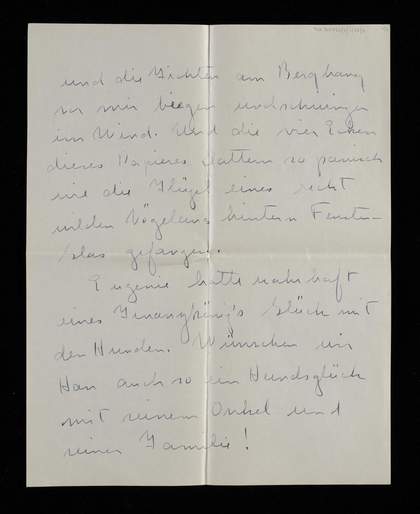 und die Fichten am Berghang
vor mir biegen und schwingen
im Wind. Und die vier Ecken
dieses Papieres flattern so panisch
wie die Flügel eines recht
wilden Vögeleins hinterm Fenster-
glas gefangen.
Eugenie hatte wahrhaft
eines Glück mit
den Hunden. Wünschen wir
Han auch so ein Hundsglück
mit seinem Onkel und
seiner Familie!